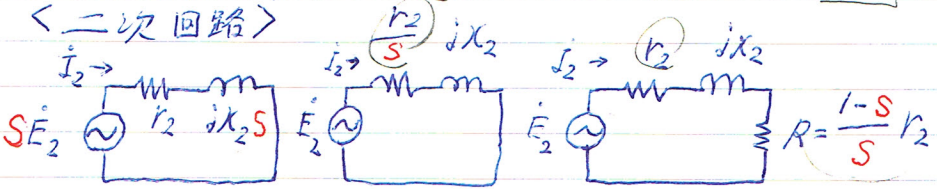 <二次回路>
İ₂→ r₂ jx₂S SĖ₂
İ₂→ r₂/S jx₂ Ė₂
İ₂→ r₂ jx₂ Ė₂ R=(1-S)/S r₂